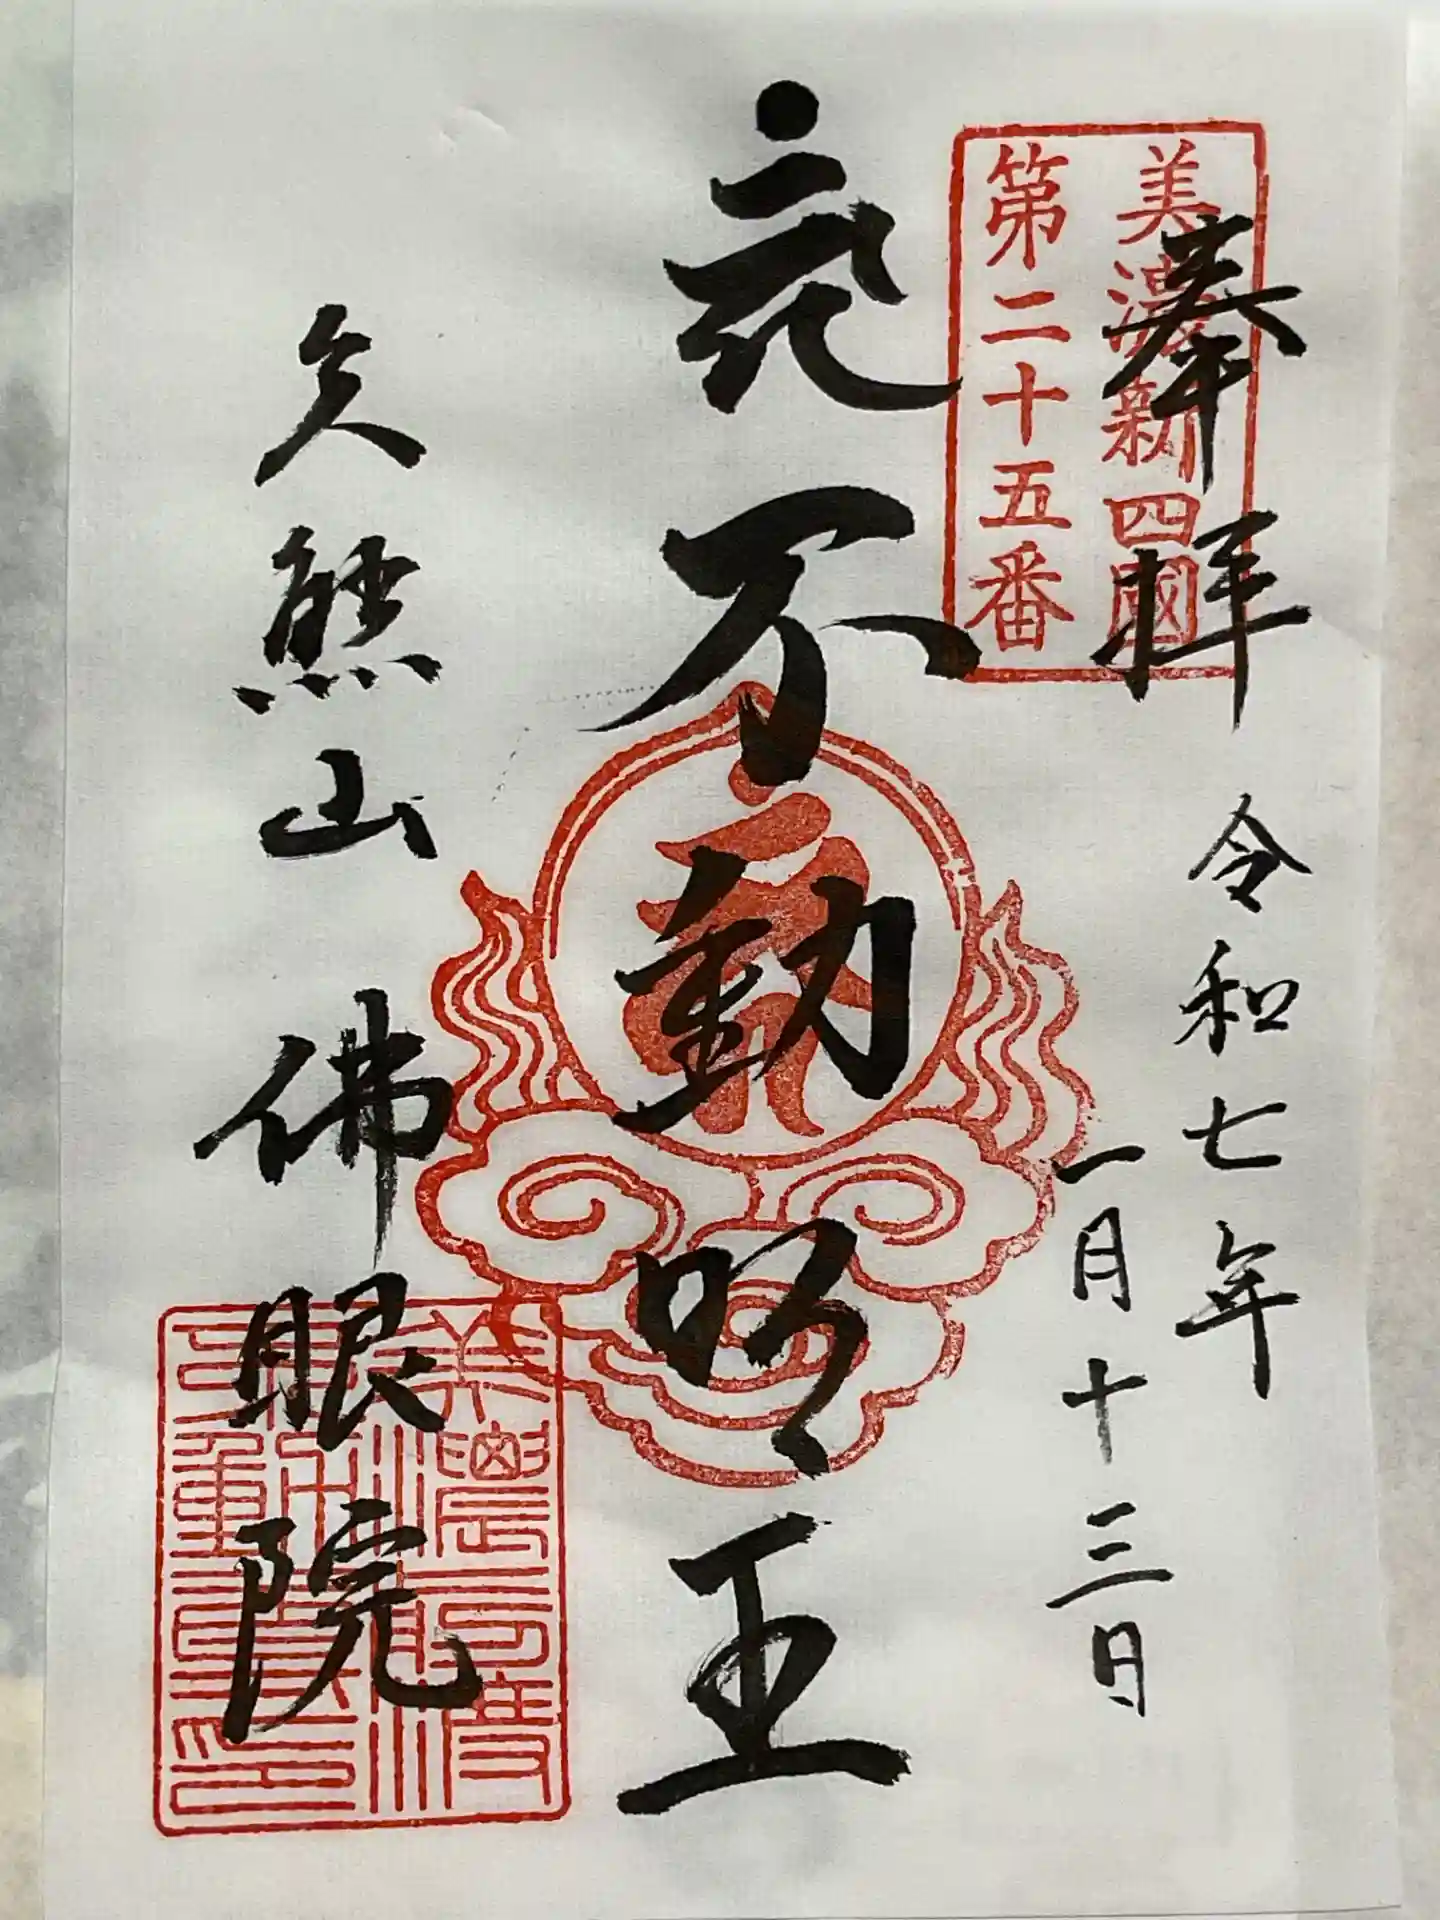 奉拝
令和七年
一月十三日
美濃新四國
第二十五番
不動明王
久熊山
佛眼院